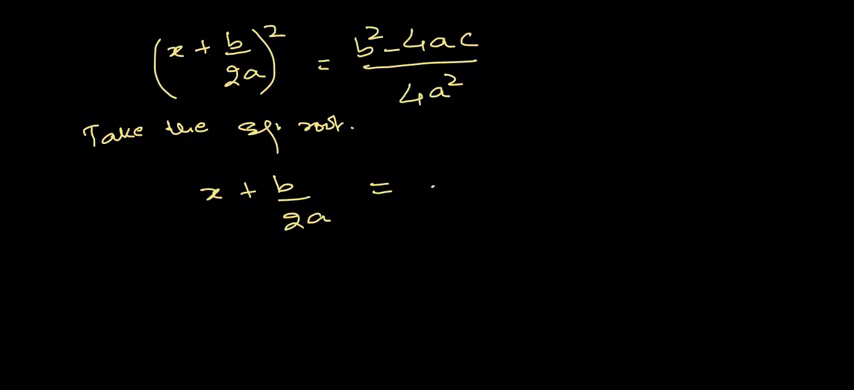 (x + b/2a)² = b² - 4ac / 4a²
Take the sq. root.
x + b/2a =